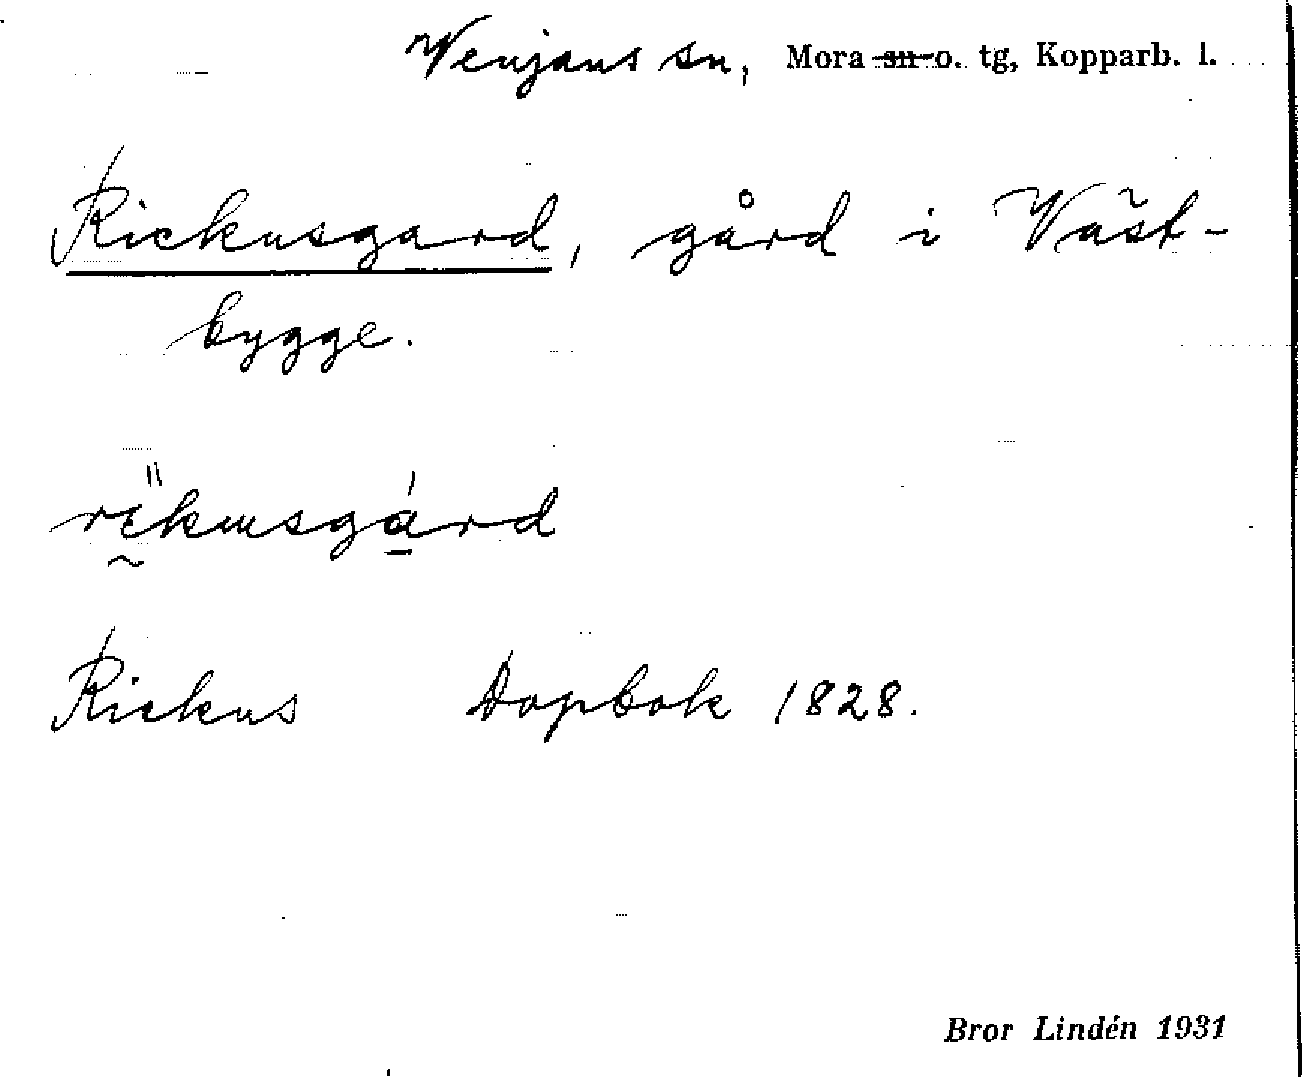 Venjans sn, Mora sn o. tg, Kopparb. l.
Rickusgard, gård i Väst-
bygge.
rikusgard
Rickus Dopbok 1828.
Bror Lindén 1931